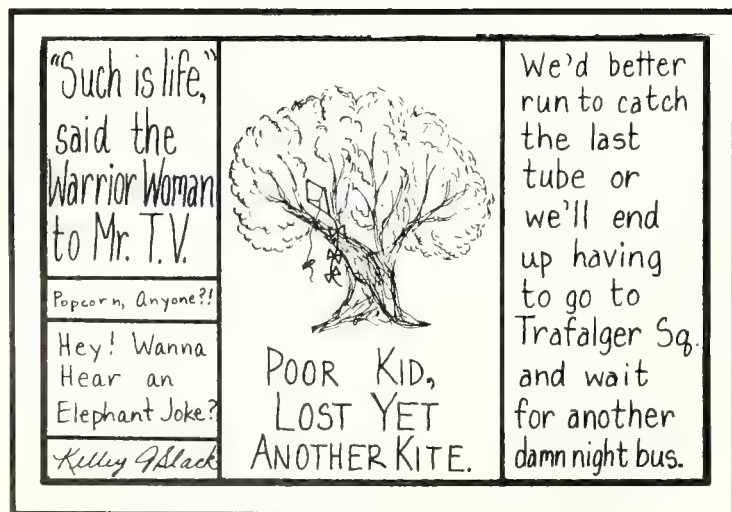 "Such is life,"
said the
Warrior Woman
to Mr. T.V.
Popcorn, Anyone?!
Hey! Wanna
Hear an
Elephant Joke?
Kelley A Slack
POOR KID,
LOST YET
ANOTHER KITE.
We'd better
run to catch
the last
tube or
we'll end
up having
to go to
Trafalger Sq.
and wait
for another
damn night bus.